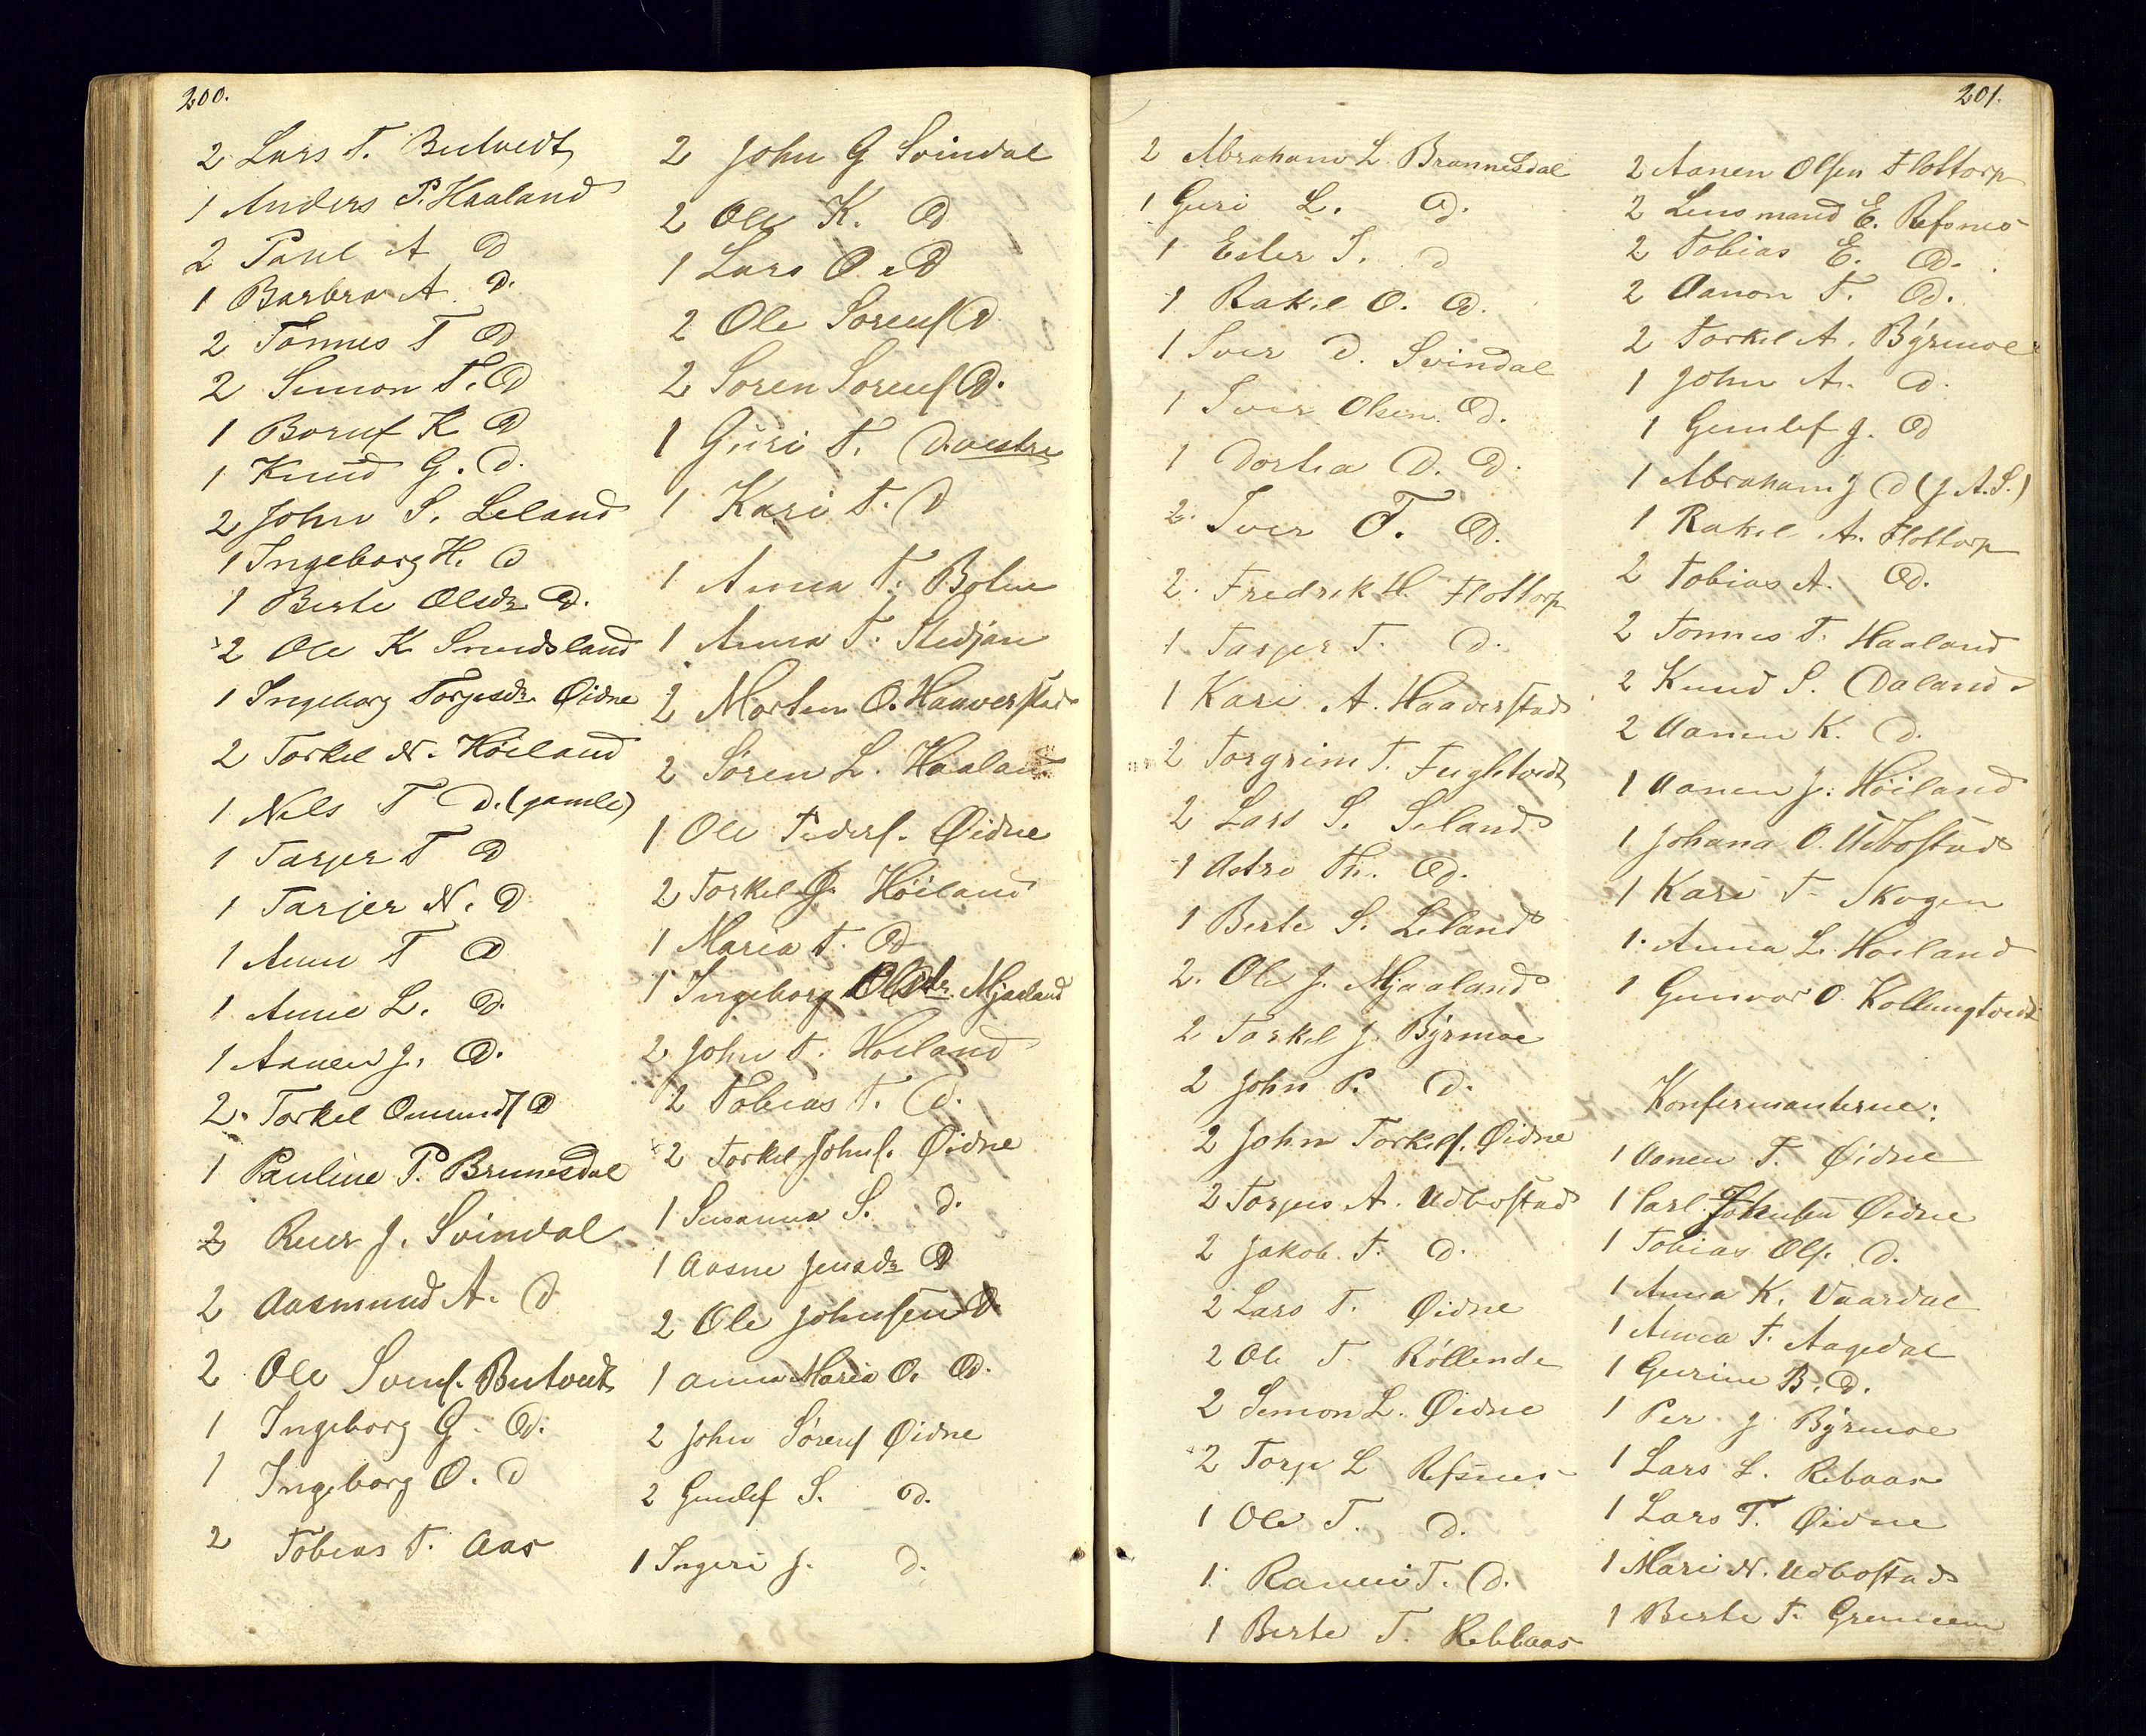 200.
2 Lars T. Butvedt
1 Anders P. Haaland
2 Paul A D
1 Barbra A. D.
2 Tønnes T D
2 Simon T. D
1 Boruf K D
1 Knud G. D.
2 John S. Leland
1 Ingeborg H. D
1 Berte Olsdr D.
2 Ole K. Smedsland
1 Ingeborg Torjesdr Øidne
2 Torkel N. Höiland
1 Nels T D. (gamle)
1 Tarjer T D
1 Tarjer N. D
1 Anne T D
1 Anne L. D.
1 Aanen J. D.
2. Torkel Omundf D
1 Pauline P. Brunnesdal
2 Reier J. Svindal
2 Aasmund A. D
2 Ole Svenf. Butvedt
1 Ingeborg G. D.
1 Ingeborg O. D
2 Tobias T. Aas
2 John G Svindal
2 Ole K. D
1 Lars O. D
2 Ole Sorenf D
2 Soren Sorenf D.
1 Guri T. D. vestre
1 Kari T. D
1 Anna T. Bolen
1 Anna T. Stedjan
2 Morten O. Haaverstad
2 Sören L. Haaland
1 Ole Pederf. Øidne
2 Torkel J. Höiland
1 Maria T. D
1 Ingeborg Olsdr. Mjaaland
2 John T. Hoiland
2 Tobias T. D.
2 Torkel Johnf. Øidne
1 Susanna S. D.
1 Aasne Jensdr D
2 Ole Johnsen D
1 Anna Maria O. D.
2 John Sörenf Øidne
2 Gunlef S. D.
1 Ingeri J. D.
201.
2 Abraham L. Brunnesdal
1 Guri L. D.
1 Ester S. D
1 Rakel O. D.
1 Iver D. Svindal
1 Iver Olsen D.
1 Dortea D. D.
2. Iver T. D.
2. Fredrik H. Flottorp
1 Tarjer T. D.
1 Kari A. Haaverstad
2 Torgrim T. Fugletvedt
2 Lars S. Seland
1 Astro Th. D.
1 Berte S. Leland
2. Ole J. Mjaaland
2 Torkel J. Byrmoe
2 John P. D.
2 John Torkelf. Øidne
2 Torjus A. Udbostad
2 Jakob T. D.
2 Lars T. Øidne
2 Ole T. Röllende
2 Simon L. Øidne
2 Torje L Refsnes
1 Ole T. D.
1. Rannei T. D.
1 Berte T. Rebbaas
2 Aanen Olsen Flottorp
2 Lensmand E. Refsnes
2 Tobias E. D.
2 Aanon T. D.
2 Torkel A. Byrmoe
1 John A. D.
1 Gunlef J. D
1 Abraham J D (J A. S.)
1 Rakel A. Flottorp
2 Tobias A. D.
2 Tonnes T. Haaland
2 Knud S. Daland
2 Aanen K. D.
1 Aanen J. Höiland
1 Johana O. Udbostad
1 Kari T. Skogen
1. Anna L. Hoiland
1 Gunvor O. Kollungtvedt
Konfermanterne:
1 Aanen T. Øidne
1 Carl Johnsen Øidne
1 Tobias Olf. D.
1 Anna K. Vaardal
1 Anna T. Aagedal
1 Gurine B. D.
1 Per J. Byrmoe
1 Lars L. Rebaas
1 Lars T. Øidne
1 Mari N. Udbostad
1 Berte T.